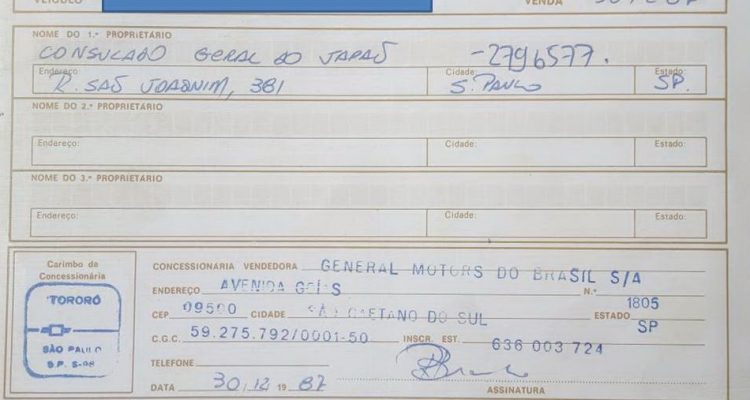 VEÍCULO VENDA
NOME DO 1.º PROPRIETÁRIO
CONSULADO GERAL DO JAPAÕ -2796577.
Endereço: Cidade: Estado:
R. SAÕ JOAQUIM, 381 S. PAULO SP.
NOME DO 2.º PROPRIETÁRIO
Endereço: Cidade: Estado:
NOME DO 3.º PROPRIETÁRIO
Endereço: Cidade: Estado:
Carimbo da
Concessionária
TORORÓ
SÃO PAULO
S.P. S-08
CONCESSIONÁRIA VENDEDORA GENERAL MOTORS DO BRASIL S/A
ENDEREÇO AVENIDA GOIÁS N.º 1805
CEP 09500 CIDADE SÃO CAETANO DO SUL ESTADO SP
C.G.C. 59.275.792/0001-50 INSCR. EST. 636 003 724
TELEFONE
DATA 30/12 19 87
ASSINATURA